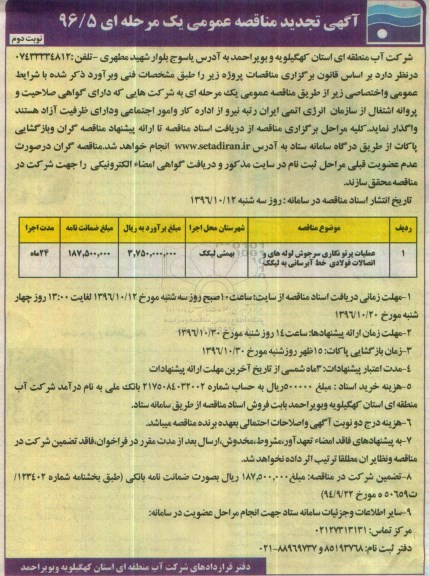 آگهی تجدید مناقصه عمومی یک مرحله ای ۹۶/۵
نوبت دوم
شرکت آب منطقه ای استان کهگیلویه و بویراحمد به آدرس یاسوج بلوار شهید مطهری -تلفن:۰۷۴۳۳۳۳۴۸۱۲
درنظر دارد بر اساس قانون برگزاری مناقصات پروژه زیر را طبق مشخصات فنی وبرآورد ذکر شده با شرایط
عمومی واختصاصی زیر از طریق مناقصه عمومی یک مرحله ای به شرکت هایی که دارای گواهی صلاحیت و
پروانه اشتغال از سازمان انرژی اتمی ایران رتبه نیرو از اداره کار وامور اجتماعی ودارای ظرفیت آزاد هستند
واگذار نماید.کلیه مراحل برگزاری مناقصه از دریافت اسناد مناقصه تا ارائه پیشنهاد مناقصه گران وبازگشایی
پاکات از طریق درگاه سامانه ستاد به آدرس www.setadiran.ir انجام خواهد شد.مناقصه گران درصورت
عدم عضویت قبلی مراحل ثبت نام در سایت مذکور و دریافت گواهی امضاء الکترونیکی را جهت شرکت در
مناقصه محقق سازند.
تاریخ انتشار اسناد مناقصه در سامانه : روز سه شنبه ۱۳۹۶/۱۰/۱۲
ردیف موضوع مناقصه شهرستان محل اجرا مبلغ برآورد به ریال مبلغ ضمانت نامه مدت اجرا
۱ عملیات پرتو نگاری سرجوش لوله های و اتصالات فولادی خط آبرسانی به لیکک بهمئی لیکک ۳,۷۵۰,۰۰۰,۰۰۰ ۱۸۷,۵۰۰,۰۰۰ ۲۴ماه
۱-مهلت زمانی دریافت اسناد مناقصه از سایت: ساعت ۱۰صبح روز سه شنبه مورخ ۱۳۹۶/۱۰/۱۲ لغایت ۱۳:۰۰ روز چهار
شنبه مورخ ۱۳۹۶/۱۰/۲۰
۲-مهلت زمان ارائه پیشنهادها: ساعت ۱۴ روز شنبه مورخ ۱۳۹۶/۱۰/۳۰
۳-زمان بازگشایی پاکات: ۱۵ظهر روزشنبه مورخ ۱۳۹۶/۱۰/۳۰
۴-مدت اعتبار پیشنهادات: ۳ماه شمسی از تاریخ آخرین مهلت ارائه پیشنهادات
۵-هزینه خرید اسناد : مبلغ ۵۰۰۰۰۰ریال به حساب شماره ۲۱۷۵۰۸۴۰۳۲۰۰۲ بانک ملی به نام درآمد شرکت آب
منطقه ای استان کهگیلویه وبویراحمد بابت فروش اسناد مناقصه از طریق سامانه ستاد.
۶-هزینه درج دو نوبت آگهی واصلاحات احتمالی بعهده برنده مناقصه میباشد.
۷-به پیشنهادهای فاقد امضاء تعهدآور،مشروط،مخدوش،ارسال بعد از مدت مقرر در فراخوان،فاقد تضمین شرکت در
مناقصه ونظایر ان مطلقا ترتیب اثر داده نخواهد شد.
۸-تضمین شرکت در مناقصه: مبلغ۱۸۷,۵۰۰,۰۰۰ ریال بصورت ضمانت نامه بانکی (طبق بخشنامه شماره ۱۲۳۴۰۲/
ت۵۰۶۵۹ ه مورخ ۹۴/۹/۲۲)
۹-سایر اطلاعات وجزئیات سامانه ستاد جهت انجام مراحل عضویت در سامانه:
مرکز تماس: ۰۲۱۲۷۳۱۳۱۳۱
دفتر ثبت نام: ۸۵۱۹۳۷۶۸ و ۸۸۹۶۹۷۳۷-۰۲۱
دفتر قراردادهای شرکت آب منطقه ای استان کهگیلویه وبویراحمد